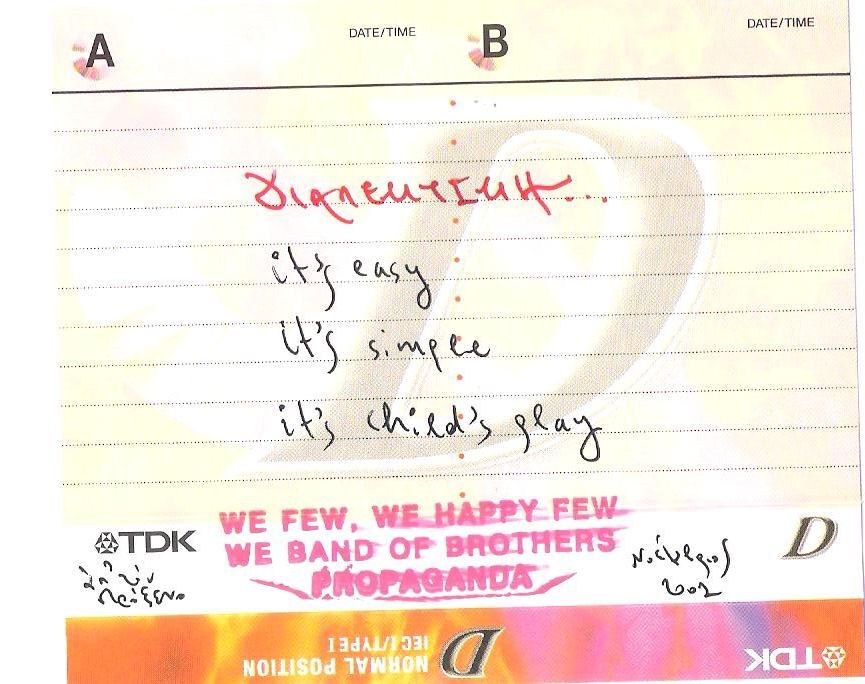 A DATE/TIME B DATE/TIME
ΔΙΑΛΕΚΤΙΚΗ...
it's easy
it's simple
it's child's play
TDK
WE FEW, WE HAPPY FEW
WE BAND OF BROTHERS
PROPAGANDA
Νοέμβριος
D
TDK
D
NORMAL POSITION
IEC I/TYPE I